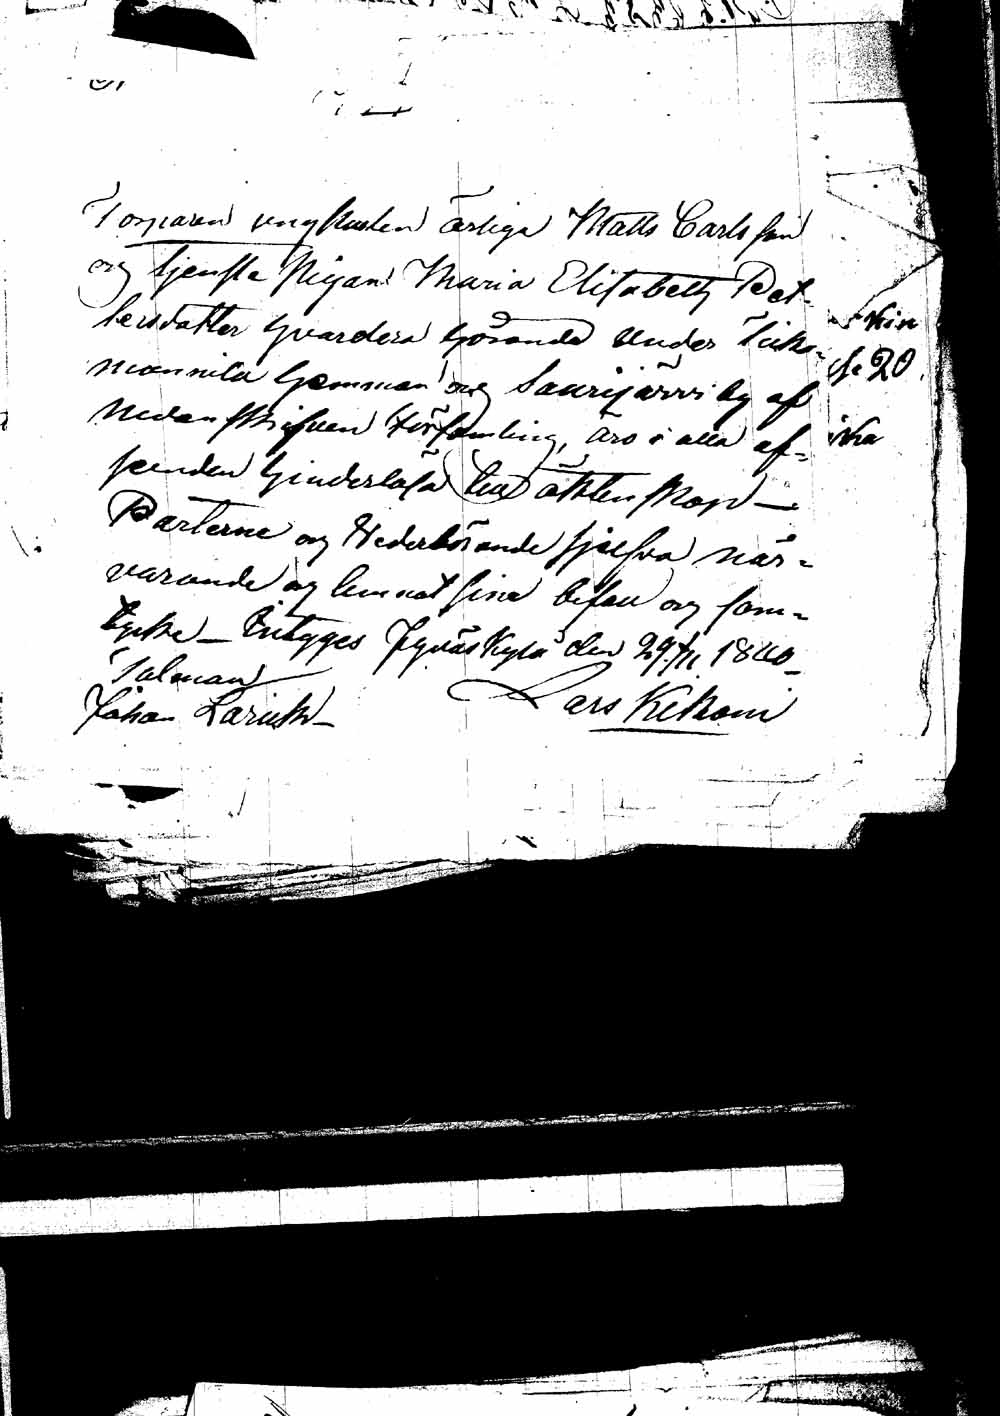 Torparen ungkarlen ärliga Matts Carlsson
og tjenste Pigan Maria Elisabeth Pet-
tersdatter hvardera hörande under
mannila hemman og Saarijärvi by af
nedanskrifven församling, äro i alla af-
seenden hinderlösa till äktenskap —
Parterne og Wederbörande sjelfva när-
varande og lemnat sina bifall og sam-
tycke — Intygges Jyväskylä den 29/11 1840 —
Talman
Johan
Lars Kekoni
20